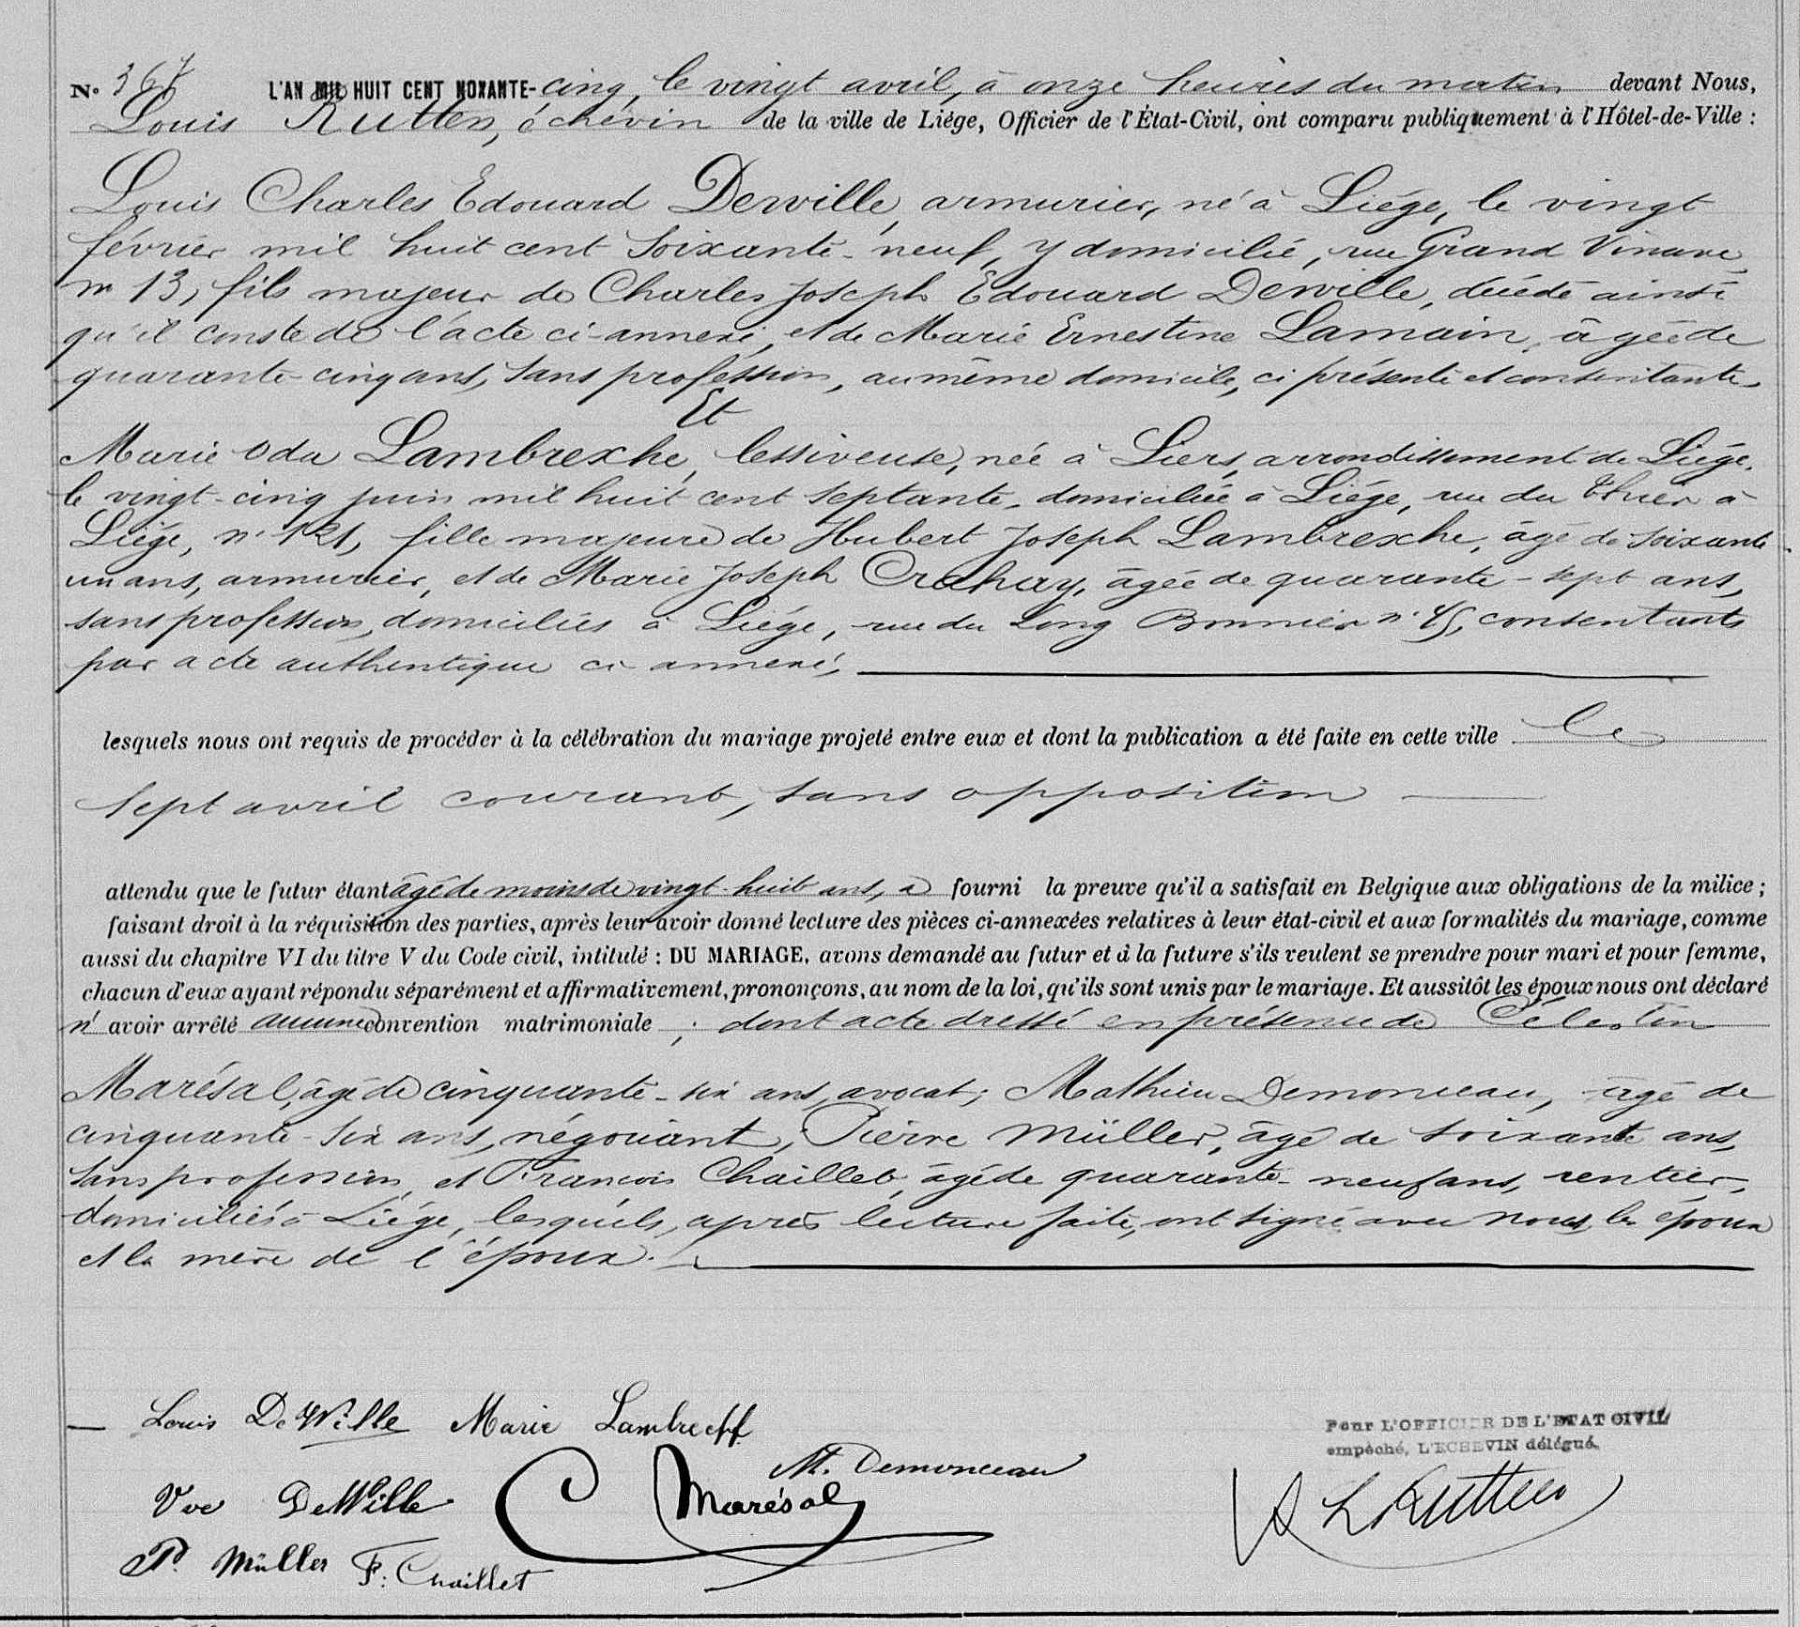 N° 367 L'AN MIL HUIT CENT NONANTE-cinq, le vingt avril, à onze heures du matin devant Nous,
Louis Rutten, échevin de la ville de Liége, Officier de l'État-Civil, ont comparu publiquement à l'Hôtel-de-Ville :
Louis Charles Edouard Dewille, armurier, né à Liége, le vingt
février mil huit cent soixante-neuf, y domicilié, rue Grand Vinave
n° 13, fils majeur de Charles Joseph Edouard Dewille, décédé ainsi
qu'il conste de l'acte ci-annexé, et de Marie Ernestine Lamain, âgée de
quarante-cinq ans, sans profession, au même domicile, ci présente et consentante,
Et
Marie Oda Lambrexhe, lessiveuse, née à Liers, arrondissement de Liége,
le vingt-cinq juin mil huit cent septante, domiciliée à Liége, rue du Thier à
Liége, n° 121, fille majeure de Hubert Joseph Lambrexhe, âgé de soixante
un ans, armurier, et de Marie Joseph Crahay, âgée de quarante-sept ans,
sans profession, domiciliés à Liége, rue du Long Bonnier n° consentants
par acte authentique ci annexé,
lesquels nous ont requis de procéder à la célébration du mariage projeté entre eux et dont la publication a été faite en cette ville le
sept avril courant, sans opposition
attendu que le futur étant âgé de moins de vingt-huit ans, a fourni la preuve qu'il a satisfait en Belgique aux obligations de la milice ;
faisant droit à la réquisition des parties, après leur avoir donné lecture des pièces ci-annexées relatives à leur état-civil et aux formalités du mariage, comme
aussi du chapitre VI du titre V du Code civil, intitulé : DU MARIAGE, avons demandé au futur et à la future s'ils veulent se prendre pour mari et pour femme,
chacun d'eux ayant répondu séparément et affirmativement, prononçons, au nom de la loi, qu'ils sont unis par le mariage. Et aussitôt les époux nous ont déclaré
n' avoir arrêté aucune convention matrimoniale ; dont acte dressé en présence de Célestin
Marésal, âgé de cinquante-six ans, avocat; Mathieu Demonceau, âgé de
cinquante-six ans, négociant, Pierre Müller, âgé de soixante ans,
sans profession, et François Chaillet, âgé de quarante-neuf ans, rentier,
domiciliés à Liége, lesquels, après lecture faite, ont signé avec nous, les époux
et la mère de l'époux.
Louis DeWille Marie Lambrech
Pour L'OFFICIER DE L'ETAT CIVIL
empêché, L'ECHEVIN délégué.
M. Demonceau
Vve DeWille C Marésal
L Rutten
P. Müller F. Chaillet